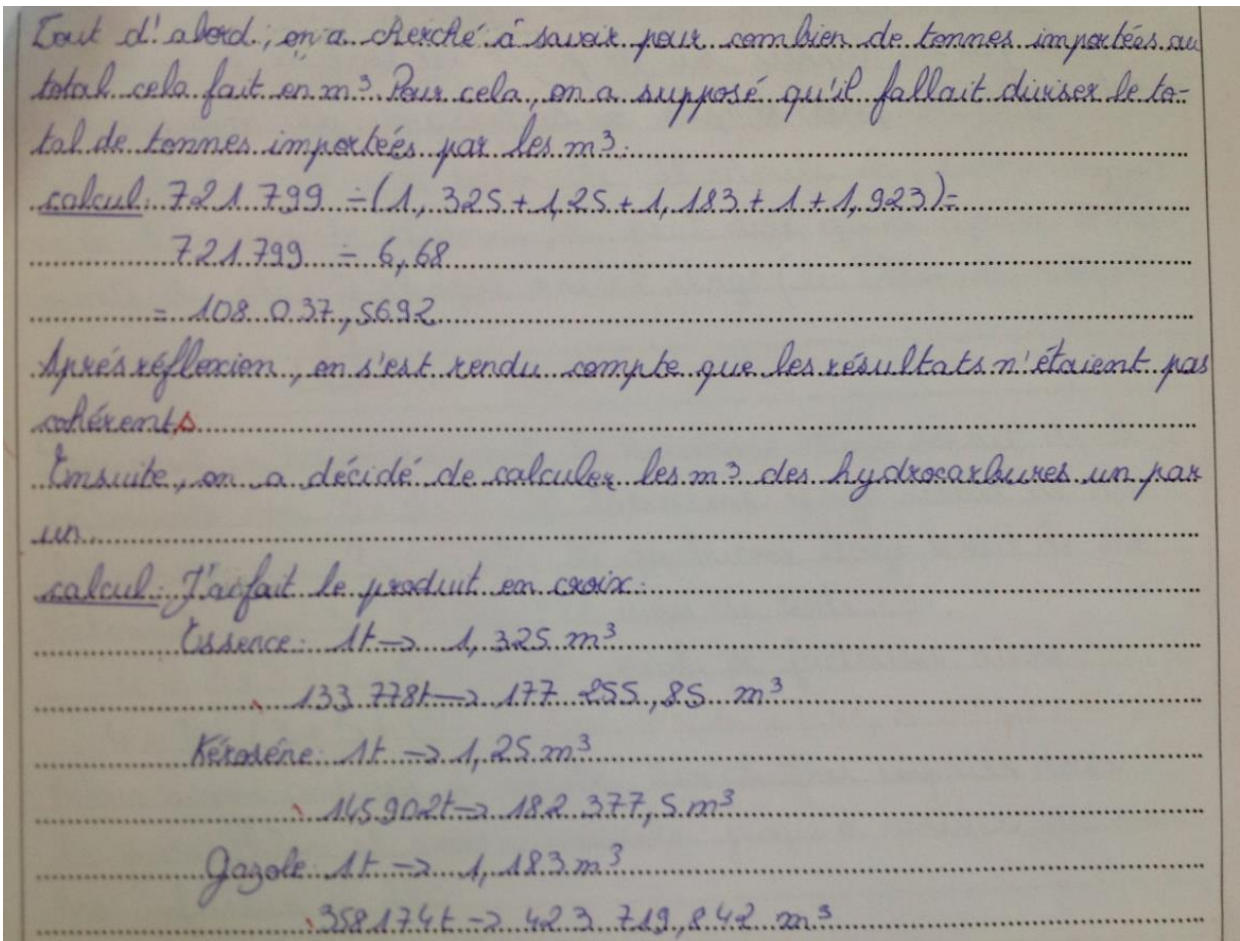 Tout d'abord, on a cherché à savoir pour combien de tonnes importées au
total cela fait en m³. Pour cela, on a supposé qu'il fallait diviser le to-
tal de tonnes importées par les m³.
calcul: 721 799 ÷ (1,325 + 1,25 + 1,183 + 1 + 1,923) =
721 799 ÷ 6,68
= 108 037,5692
Aprés réflexion, on s'est rendu compte que les résultats n'étaient pas
cohérents
Ensuite, on a décidé de calculer les m³ des hydrocarbures un par
un.
calcul: J'ai fait le produit en croix:
Essence: 1t → 1,325 m³
133 778t → 177 255,85 m³
Kéroséne: 1t → 1,25 m³
145 902t → 182 377,5 m³
Gazole: 1t → 1,183 m³
358 174t → 423 719,842 m³